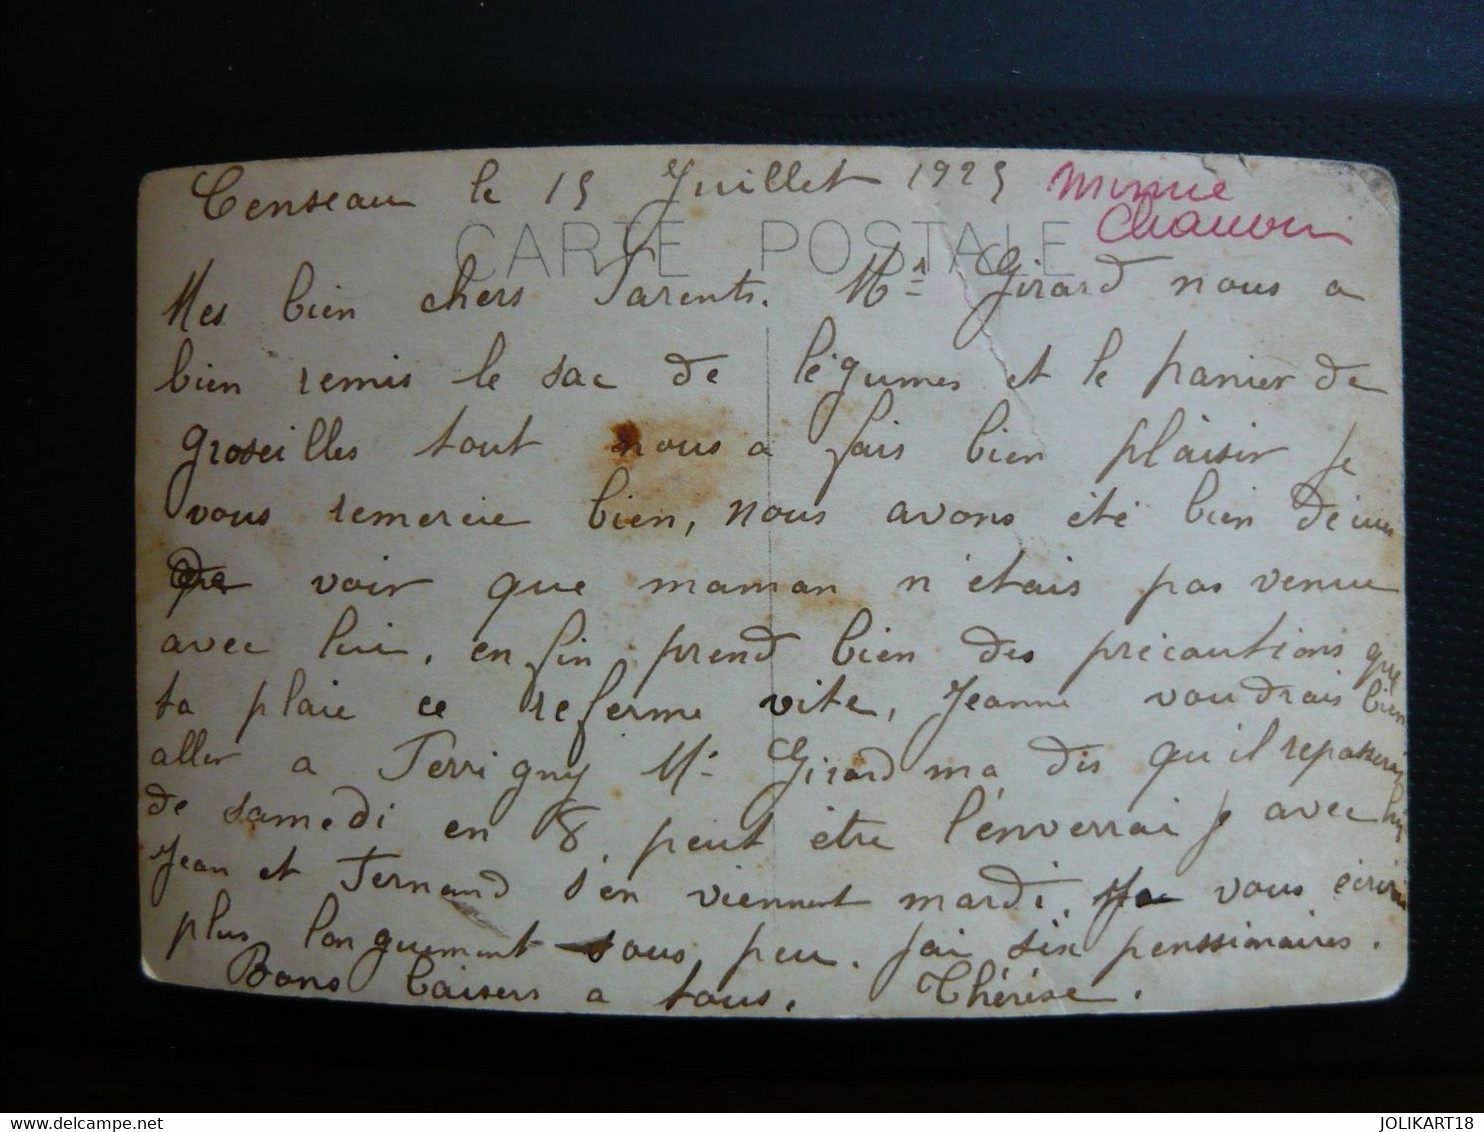 Censeau le 15 Juillet 1925
Minnie
Chauvin
CARTE POSTALE
Mes bien chers Parents. Mr Girard nous a
bien remis le sac de légumes et le panier de
groseilles tout nous a fais bien plaisir je
vous remercie bien, nous avons été bien déçues
de voir que maman n'étais pas venue
avec lui, enfin prend bien des précautions que
ta plaie ce referme vite, Jeanne voudrais bien
aller a Fervigny Mr Girard ma dis qu'il repasserais
de samedi en 8, peut être l'enverrai je avec lui
Jean et Fernand s'en viennent mardi. Je vous écrirai
plus longuement sous peu. jai six penssionaires.
Bons baisers a tous. Thérèse.
www.delcampe.net
JOLIKART18